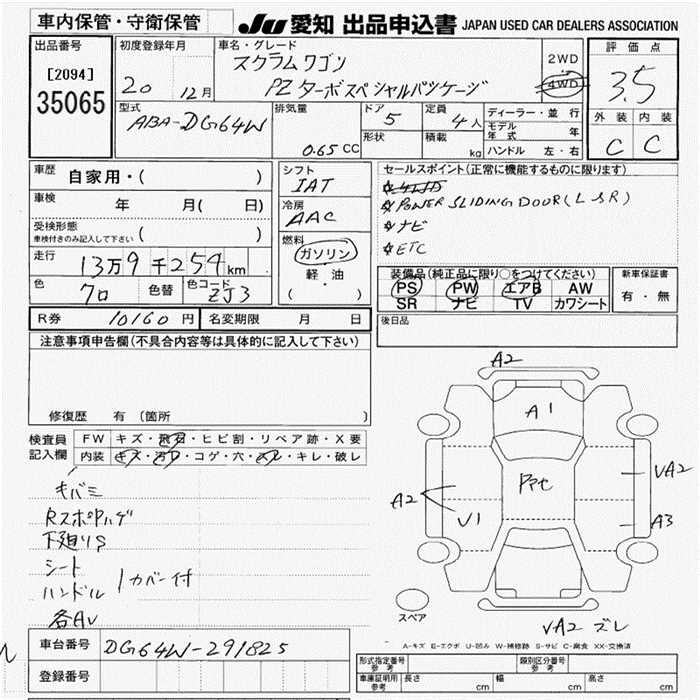 車内保管・守衛保管
JU 愛知 出品申込書 JAPAN USED CAR DEALERS ASSOCIATION
出品番号
[2094]
35065
初度登録年月
20 12月
車名・グレード
スクラムワゴン
PZターボスペシャルパッケージ
2WD
4WD
評価点
3.5
外装 内装
C C
型式
ABA-DG64W
排気量
0.65 CC
ドア
5
定員
4人
形状
積載
kg
ディーラー・並行
モデル年式 年
ハンドル 左・右
車歴 自家用・( )
車検 年 月( 日)
受検形態
車検付きのみ記入して下さい ( )
走行
13万9千254km
色
クロ
色替
色コード
ZJ3
シフト
IAT
冷房
AAC
燃料
ガソリン
軽・油
( )
セールスポイント(正常に機能するものに限ります)
☆4WD
☆POWER SLIDING DOOR(L&R)
☆ナビ
☆ETC
装備品(純正品に限り○をつけてください)
PS PW エアB AW
SR ナビ TV カワシート
新車保証書
有・無
後日品
R券 10160円 名変期限 月 日
注意事項申告欄(不具合内容等は具体的に記入して下さい)
修復歴 有(箇所 )
検査員記入欄
FW キズ・飛石・ヒビ割・リペア跡・X要
内装 キズ・汚レ・コゲ・穴・スレ・キレ・破レ
キバミ
Rスポ中ハゲ
下廻りS
シート
ハンドル カバー付
各AU
A2
A1
A2
V1
VA2
A3
VA2 ズレ
スペア
A-キズ E-エクボ U-凹み W-補修跡 S-サビ C-腐食 XX-交換済
車台番号 DG64W-291825
登録番号
形式指定番号 参考
類別区分番号 参考
車庫証明用 参考 長さ cm 幅 cm 高さ cm